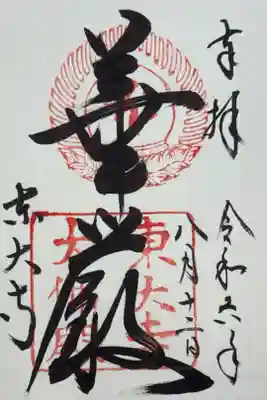 奉拝
令和六年
八月十二日
華厳
東大寺
東大寺
大仏殿